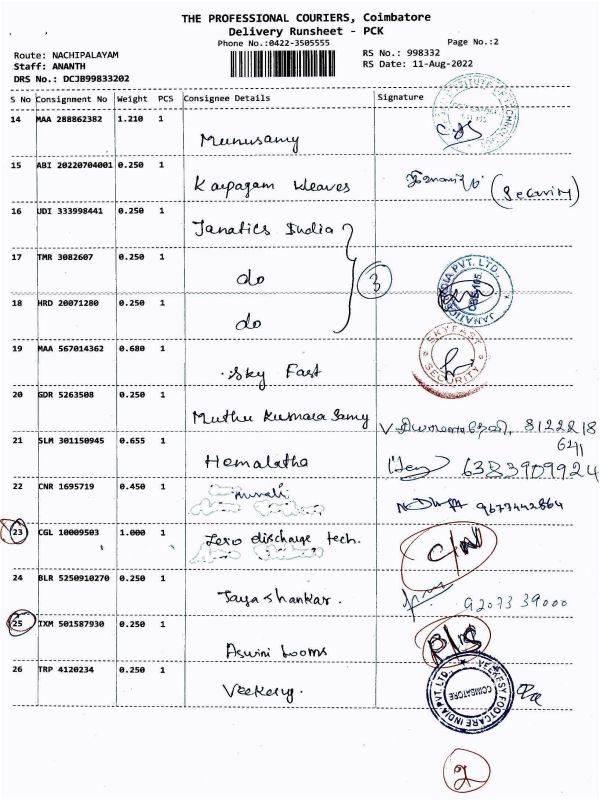 THE PROFESSIONAL COURIERS, Coimbatore
Delivery Runsheet - PCK
Phone No.:0422-3505555
Page No.:2
Route: NACHIPALAYAM
RS No.: 998332
Staff: ANANTH
RS Date: 11-Aug-2022
DRS No.: DCJB99833202
S No Consignment No Weight PCS Consignee Details Signature
14 MAA 288862382 1.210 1
Munusamy
15 ABI 20220704001 0.250 1
Karpagam Weaves (Security)
16 UDI 333998441 0.250 1
Janatics India
17 TMR 3082607 0.250 1
do 3
18 HRD 20071280 0.250 1
do
JANATICS INDIA PVT. LTD.,
19 MAA 567014362 0.680 1
Sky Fast
SKYFAST SECURITY
20 GDR 5263508 0.250 1
Muthu Kumara Samy 8122218
641
21 SLM 301150945 0.655 1
Hemalatha 6383909924
22 CNR 1695719 0.450 1
murali 9677442864
23 CGL 10009503 1.000 1
Zero discharge tech. C/N
24 BLR 5250910270 0.250 1
Jayashankar. 9207339000
25 IXM 501587930 0.250 1
Aswini Looms
26 TRP 4120234 0.250 1
Veekesy.
VEEKESY FOOTCARE INDIA PVT. LTD.
COIMBATORE
2